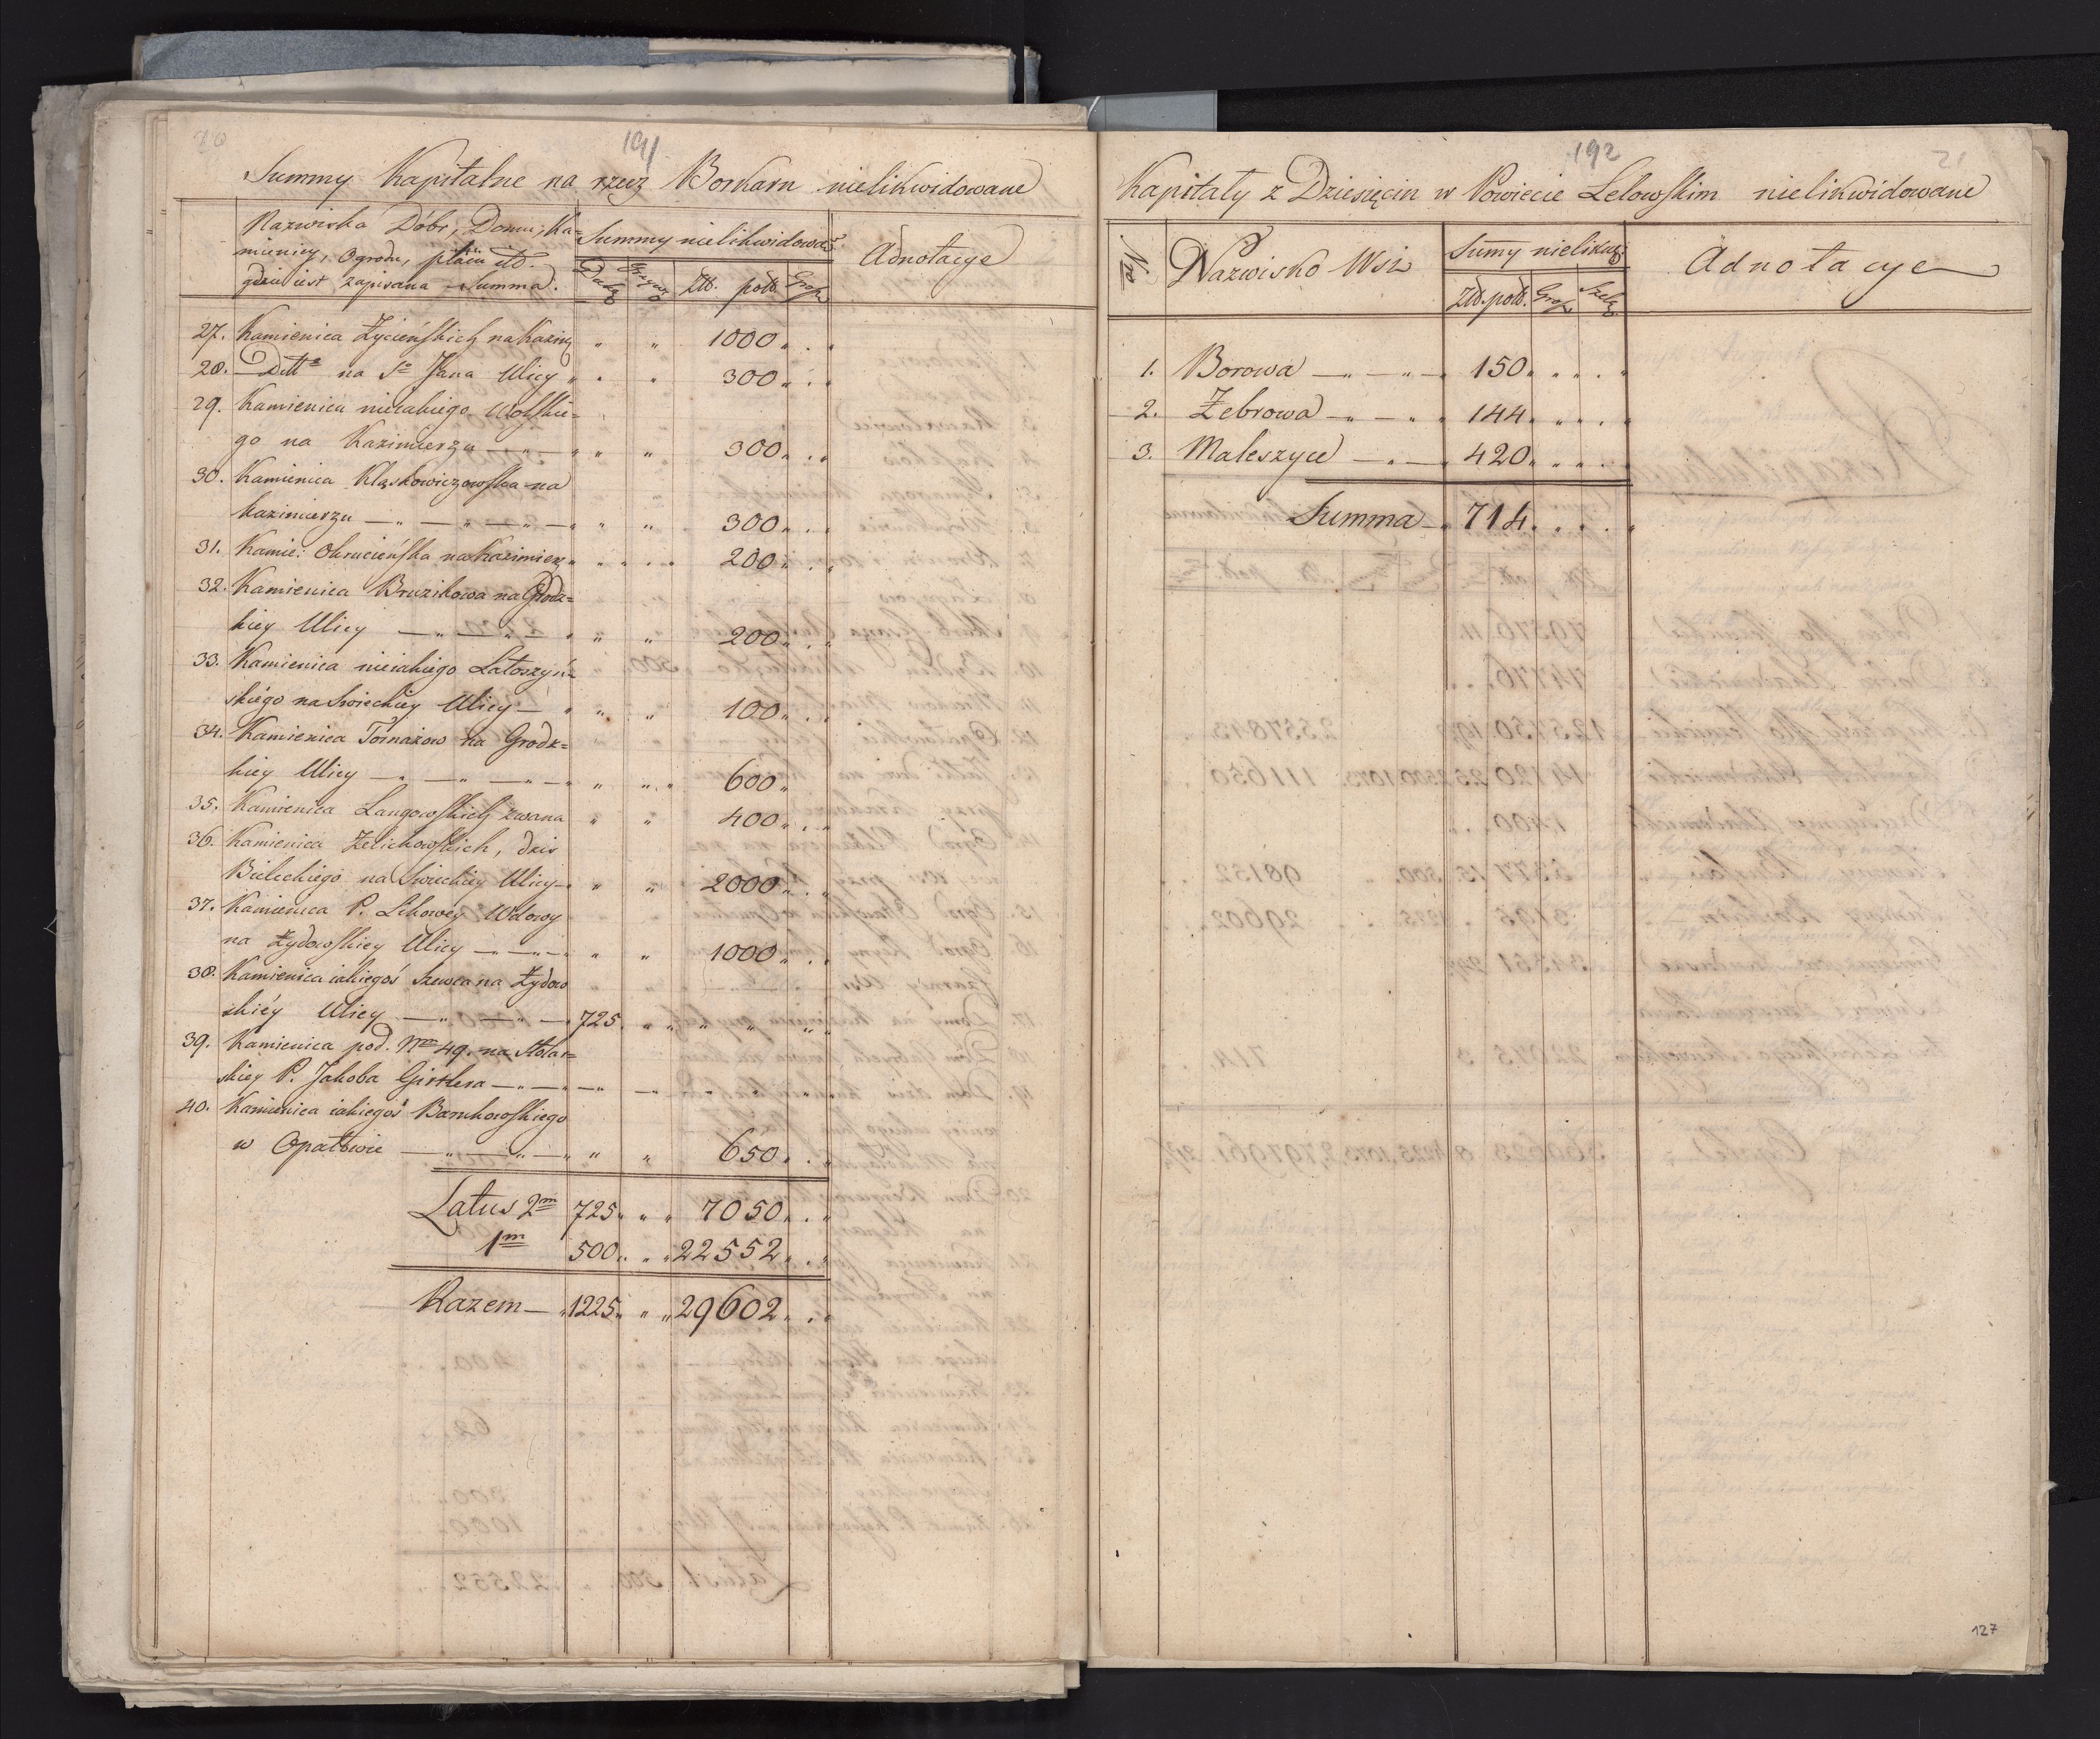 20
191
Summy Kapitalne na rzecz Borkarn nielikwidowane
Nazwiska Dóbr, Domu, Ka=
mienicy, Ogrodu, placu etc.
gdzie iest zapisana Summa.
Summy nielikwidowa
Zł. pols. Grosz
Adnotacye
27. Kamienica Życieńskich na Kazim " " 1000 " . "
28. Ditto na So Jana Ulicy " " 300 " . "
29. Kamienica nieiakiego Wolskie=
go na Kazimierzu — " — " " " 300 " . "
30. Kamienica Kląskowiczowska na
Kazimierzu — " — " — " — " " " 300 " . "
31. Kamie: Okrucieńska na Kazimierz " " 200 " . "
32. Kamienica Bruzikowa na Grodz=
kiey Ulicy — " — " " " 200 " . "
33. Kamienica nieiakiego Latoszyń=
skiego na Swieckiey Ulicy — " " " 100 " . "
34. Kamienica Tomazow na Grodz=
kiey Ulicy — " — " — " — " " " 600 "
35. Kamienica Langowskich zwana " " 400 " . "
36. Kamienica Zelichowskich, dzis
Bieleckiego na Swieckiey Ulicy — " " 2000 " . "
37. Kamienica P. Lekowey Wdowy
na Żydowskiey Ulicy — " — " — " " 1000 " . "
38. Kamienica iakiegoś Szewca na Żydow
skiéy Ulicy — " — " — 725 " " " " "
39. Kamienica pod Nro 49. na Stolar=
skiey P. Jakoba Girtlera — " — " — "
40. Kamienica iakiegoś Bankowskiego
w Opatowie — " — " — " " " 650 " . "
Latus 2m 725 " " " 7050 " . "
1m 500 " " " 22552 " . "
Razem — " 1225 " " " 29602 " . "
192
21
Kapitały z Dziesięcin w Powiecie Lelowskim nielikwidowane
Nro
Nazwisko Wsi
Sumy nielikwi
Zł. pols. Grosz Szelą
Adnotacye
1. Borowa — " — " — " 150 " " " . "
2. Żebrowa — " — " " 144 " " " . "
3. Maleszyce — " — " 420 " " " . "
Summa — " 714 " . " . "
127